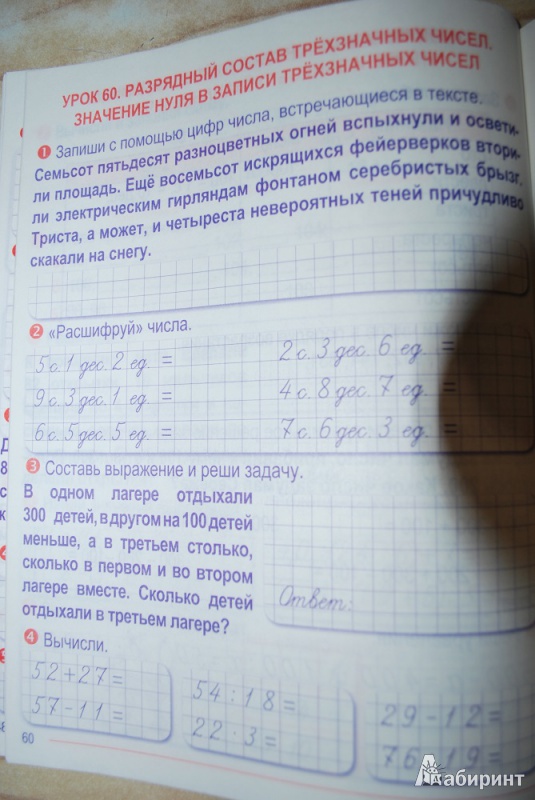 УРОК 60. РАЗРЯДНЫЙ СОСТАВ ТРЁХЗНАЧНЫХ ЧИСЕЛ.
ЗНАЧЕНИЕ НУЛЯ В ЗАПИСИ ТРЁХЗНАЧНЫХ ЧИСЕЛ
1 Запиши с помощью цифр числа, встречающиеся в тексте.
Семьсот пятьдесят разноцветных огней вспыхнули и освети-
ли площадь. Ещё восемьсот искрящихся фейерверков втори-
ли электрическим гирляндам фонтаном серебристых брызг.
Триста, а может, и четыреста невероятных теней причудливо
скакали на снегу.
2 «Расшифруй» числа.
5 с. 1 дес. 2 ед. = 2 с. 3 дес. 6 ед. =
9 с. 3 дес. 1 ед. = 4 с. 8 дес. 7 ед. =
6 с. 5 дес. 5 ед. = 7 с. 6 дес. 3 ед. =
3 Составь выражение и реши задачу.
В одном лагере отдыхали
300 детей, в другом на 100 детей
меньше, а в третьем столько,
сколько в первом и во втором
лагере вместе. Сколько детей
отдыхали в третьем лагере?
Ответ:
4 Вычисли.
52+27= 54:18= 29-12=
57-11= 22·3= 76 19=
60
Лабиринт